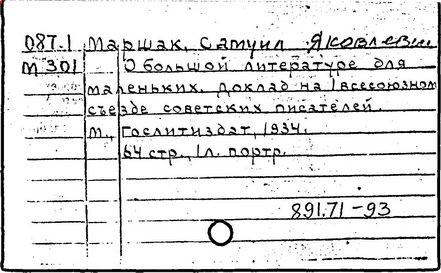 087.1 Маршак, Самуил Яковлевич
М301 О большой литературе для
маленьких. Доклад на I всесоюзном
съезде советских писателей.
М., Гослитиздат, 1934.
64 стр., 1 л. портр.
891.71-93